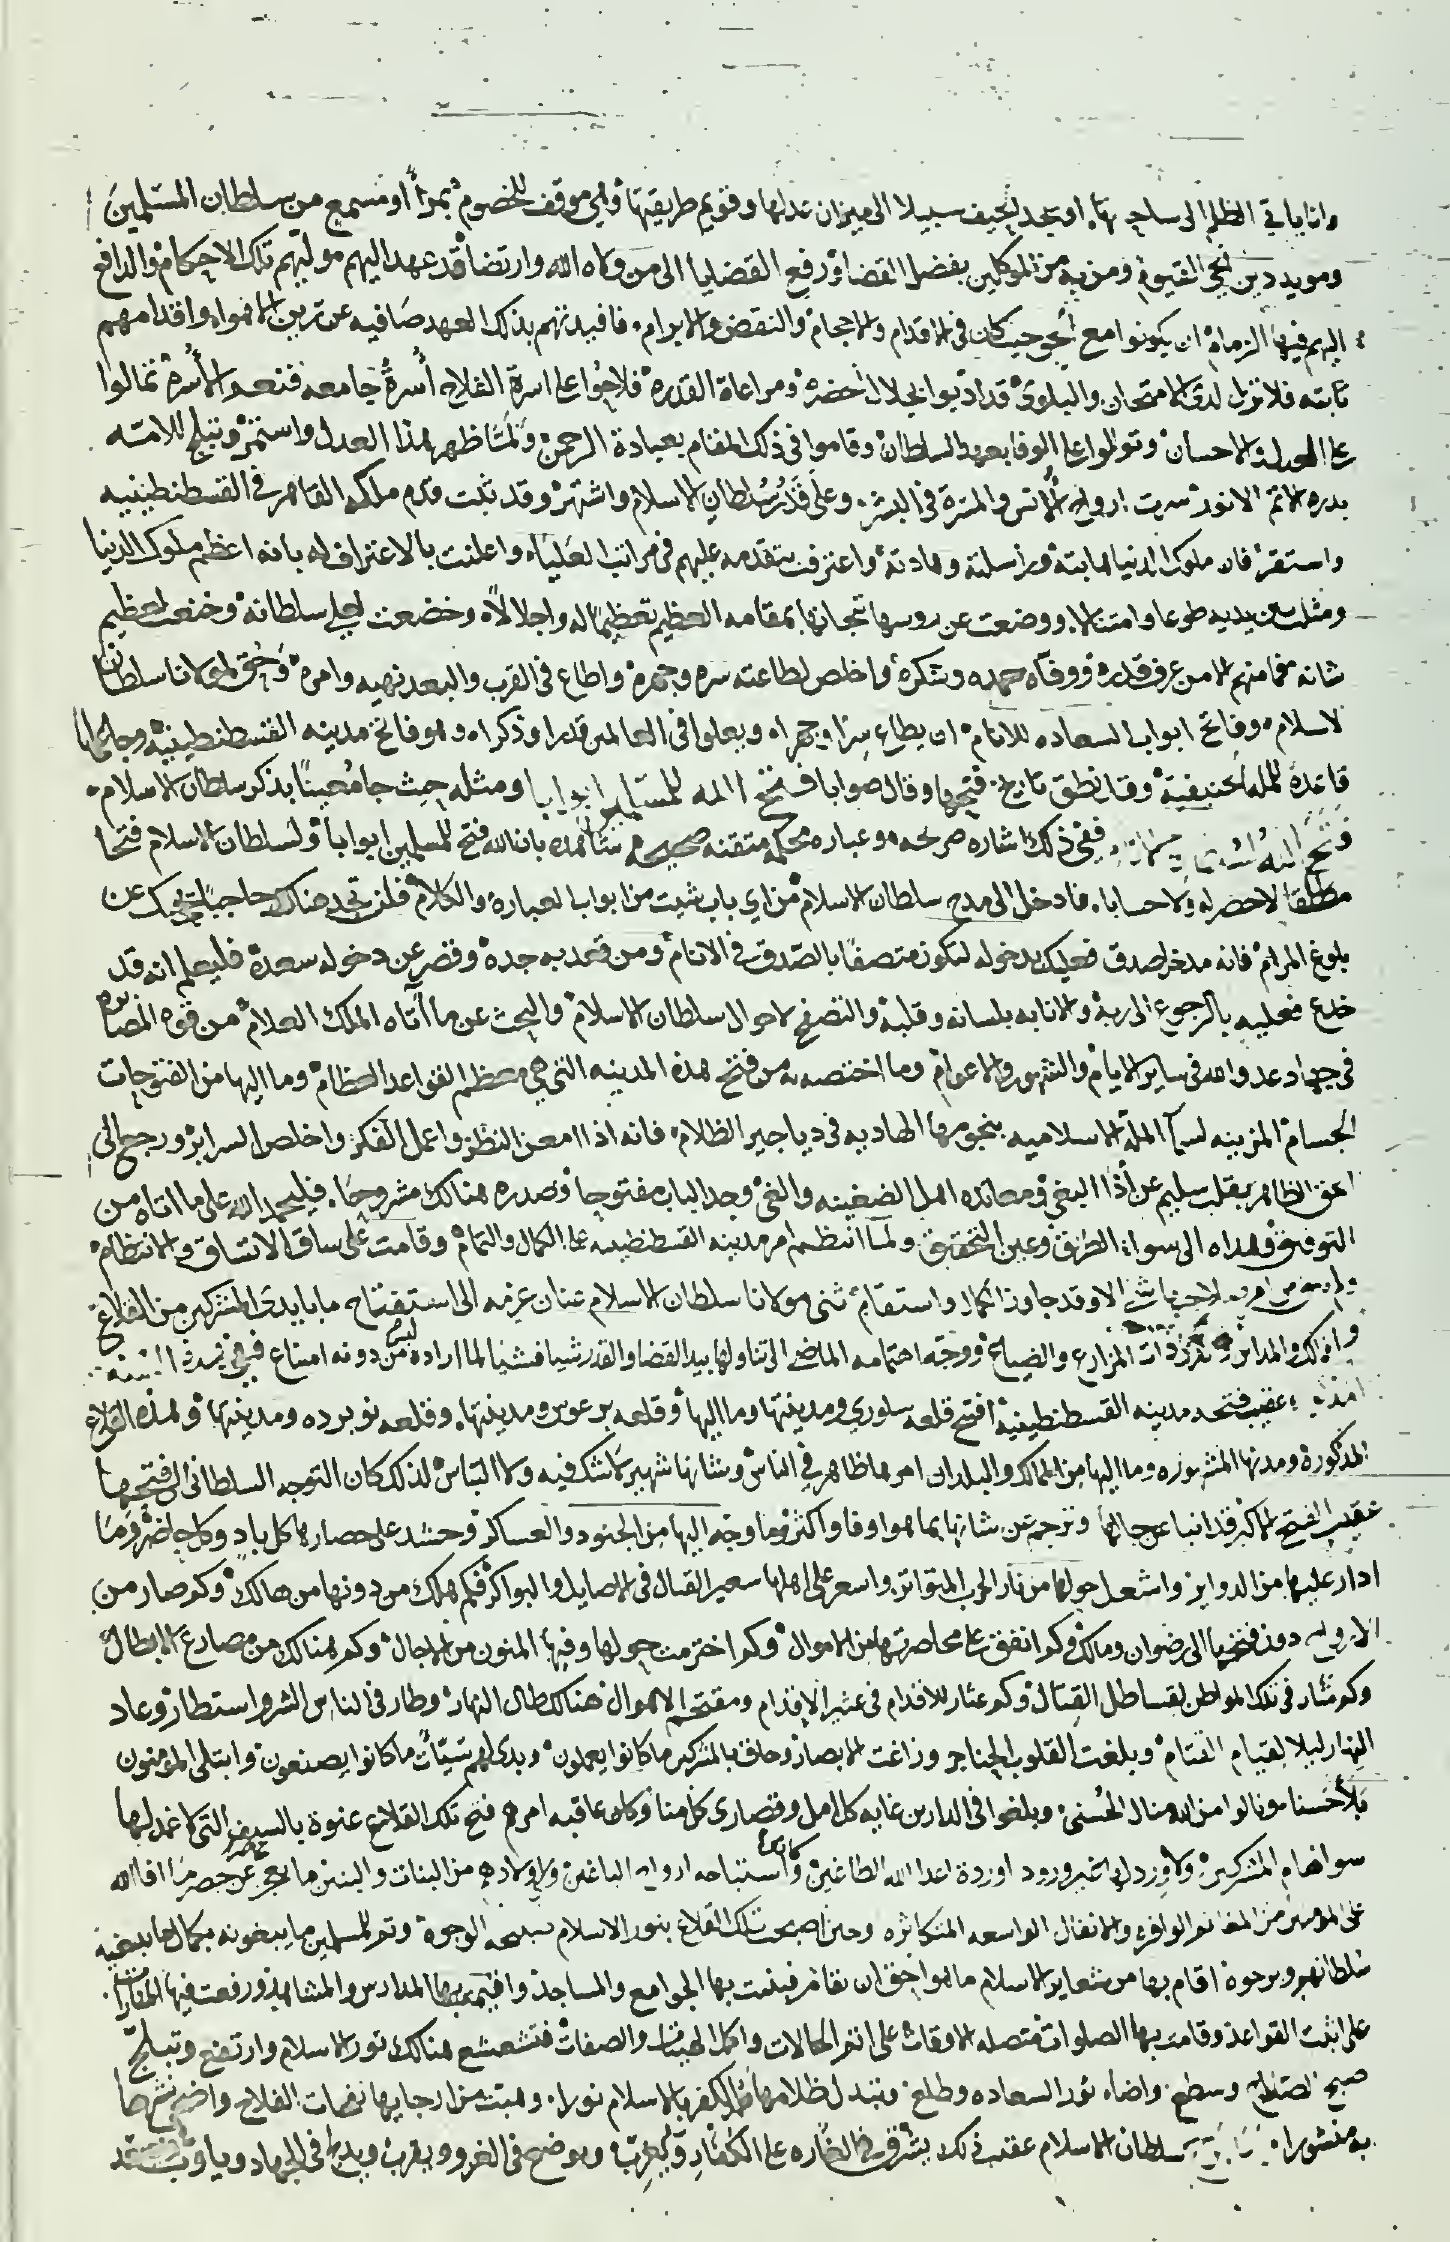 وانا باقي الظلم الى ساحتها او يجد الحيف سبيلا الى ميزان عدلها وقويم طريقتها واي موقف للخصوم بمرأ او مسمع من سلطان المسلمين
ومويد دين الحي القيوم ومن به من الموكلين بفصل القضا ورفع القضايا الى من ولاه الله وارتضا قد عهد اليهم موليهم تلك الاحكام والدافع
اليهم فيها الزمام ان يكونوا مع الحق حيث كان في الاقدام والاحجام والنقض والابرام فافيدتهم بذلك العهد صافيه عن ترين الاهواء واقدامهم
ثابته فلا تزل لدى الامتحان والبلوى قد ادبوا بخلال الحضرة ومراعاة القدرة فلاحوا على اسرة الفلاح أسرة جامعه فنعم الأسرة تمالوا
على العدل والاحسان وتوالوا على الوفا بعهد السلطان وقاموا في ذلك المقام بعبادة الرحمن ولما ظهر هذا العدل واستمر وتبلج للامه
بدره الاتم الانور سرت ارواح الأنس والمسرة في البشر وعلى قدر سلطان الاسلام واشتهر وقد ثبت قدم ملكه القاهر في القسطنطينيه
واستقر فان ملوك الدنيا هابته وراسلته وهادته واعترفت بتقدمه عليهم في مراتب العلياء واعلنت بالاعتراف له بانه اعظم ملوك الدنيا
ومثلت بين يديه طوعا وامتثالا ووضعت عن روسها تيجانها بمقامه العظيم تعظيما له واجلالا وخضعت لعلي سلطانه وخنعت لعظيم
شانه فما منهم الا من عرف قدره ووفاه حمده وشكره واخلص لطاعته سره وجهره واطاع في القرب والبعد نهيه وامره وحق لمولانا سلطان
الاسلام وفاتح ابواب السعاده للانام ان يطاع سرا وجهرا ويعلوا في العالمين قدرا وذكرا وهو فاتح مدينه القسطنطينية وجاعلها
قاعدة للملة الحنيفية وقد نطق تاريخ فتحها وقال صوابا فتح الله للمسلمين ابوابا ومثله حيث جا معينا بذكر سلطان الاسلام
فتح الله ففي ذلك اشاره صريحه وعباره محكمه متقنه صحيحه شاهده بان الله فتح للمسلمين ابوابا ولسلطان الاسلام فتحا
مطلقا لا حصر له ولا حسابا فادخل الى مدح سلطان الاسلام من اي باب شيت من ابواب العباره والكلام فلن تجد هناك حاجبا يحجبك عن
بلوغ المرام فانه مدخل صدق فعليك بدخوله لتكون متصفا بالصدق في الانام ومن قعد به جده وقصر عن دخوله سعده فليعلم انه قد
خدع فعليه بالرجوع الى ربه والانابه بلسانه وقلبه والتصفح لاحوال سلطان الاسلام والبحث عن ما أتاه الملك العلام من قوه المصابره
في جهاد عدو الله في ساير الايام والشهور والاعوام وما اختصه به من فتح هذه المدينه التي هي معظم القواعد العظام وما اليها من الفتوحات
الجسام المزينه لسما الملة الاسلاميه بنجومها الهاديه في دياجير الظلام فانه اذا امعن النظر واعمل الفكر واخلص السراير ورجع الى
الحق الظاهر بقلب سليم عن أذا البغي ومعانده اهل الضغينه والغي وجد الباب مفتوحا وصدره هنالك مشروحا فليحمد الله على ما اتاه من
التوفيق وهداه الى سواء الطريق وعين التحقيق ولما انتظم امر مدينه القسطنطينيه على الكمال والتمام وقامت على ساق الاتساق والانتظام
الا وقد جاوز الكمال واستقام ثنى مولانا سلطان الاسلام عنان عزمه الى استفتاح ما بايدى المشركين من القلاع
والمدائن ذات المزارع والضياع ووجه اهتمامه الماضي الى تناولها بيد القضا والقدر شيا فشيا لما اراده ليس من دونه امتناع ففي هذه السنه
عقيب فتحه مدينه القسطنطينية افتتح قلعه سلوري ومدينتها وما اليها وقلعه برغوس ومدينتها وقلعه نوبرده ومدينتها ولهذه القلاع
المذكورة ومدنها المشهوره وما اليها من الممالك والبلدان امرها ظاهر في الناس وشانها شهير لا شك فيه ولا التباس لذلك كان التوجه السلطاني الى فتحها
عقيب الفتح الاكبر قد انبا عن جلالها وترجم عن شانها بما هو اوفا واكثر وما وجه اليها من الجنود والعساكر وحشد على حصارها كل باد وكل حاضر وما
ادار عليها من الدواير واشعل حولها من نار الحرب المتواتر واسعر على اهلها سعير القتال في الاصايل والبواكر فكم هلك من دونها من هالك وكم صار من
الارواح دون فتحها الى رضوان ومالك وكم انفق على محاصرتها من الاموال وكم اخترمت حولها وفيها المنون من الاجال وكم هنالك من مصارع الابطال
وكم مثار في تلك المواطن لقساطل القتال وكم عثار للاقدام في عثير الاقدام ومقتحم الاهوال هنالك طال النهار وطار في الناس الشر واستطار وعاد
النهار ليلا لقيام القتام وبلغت القلوب الحناجر وزاغت الابصار وحاق بالمشركين ما كانوا يعملون وبدى لهم سيئات ما كانوا يصنعون وابتلى المومنون
بلأ حسنا ونالوا من الله منال الحسنى وبلغوا في الدارين غايه كل امل وقصارى كل منا وكان عاقبه امرهم فتح تلك القلاع عنوة بالسيوف التي لا غمد لها
سوا هام المشركين ولا ورد لها غير ورود اوردة اعدا الله الطاغين وكان استباحه ارواح الباغين واولادهم من البنات والبنين ما يعجز عن حصر ما افا الله
على المومنين من المغانم الوافره والانفال الواسعه المتكاثره وحين اصبحت تلك القلاع بنور الاسلام صبيحه الوجوه وتم للمسلمين ما يبغونه بكمال ما يبغيه
سلطانهم ويرجوه اقام بها من شعاير الاسلام ما هو احق ان يقام فبنيت بها الجوامع والمساجد واقيمت بها المدارس والمشاهد ورفعت فيها المنارات
على اثبت القواعد وقامت بها الصلوات متصله الاوقات على اتم الحالات واكمل الهيئات والصفات فتشعشع هنالك نور الاسلام وارتفع وتبلج
صبح الصلاح وسطع واضاء نور السعاده وطلع وتبدل ظلامها ظلام الكفر بالاسلام نورا وهبت من ارجايها نفحات الفلاح واضحى نشرها
به منشورا سلطان الاسلام عقيب ذلك يشرق في الغاره على الكفار ويغرب ويوضع في الغزو ويقرب ويداب في الجهاد